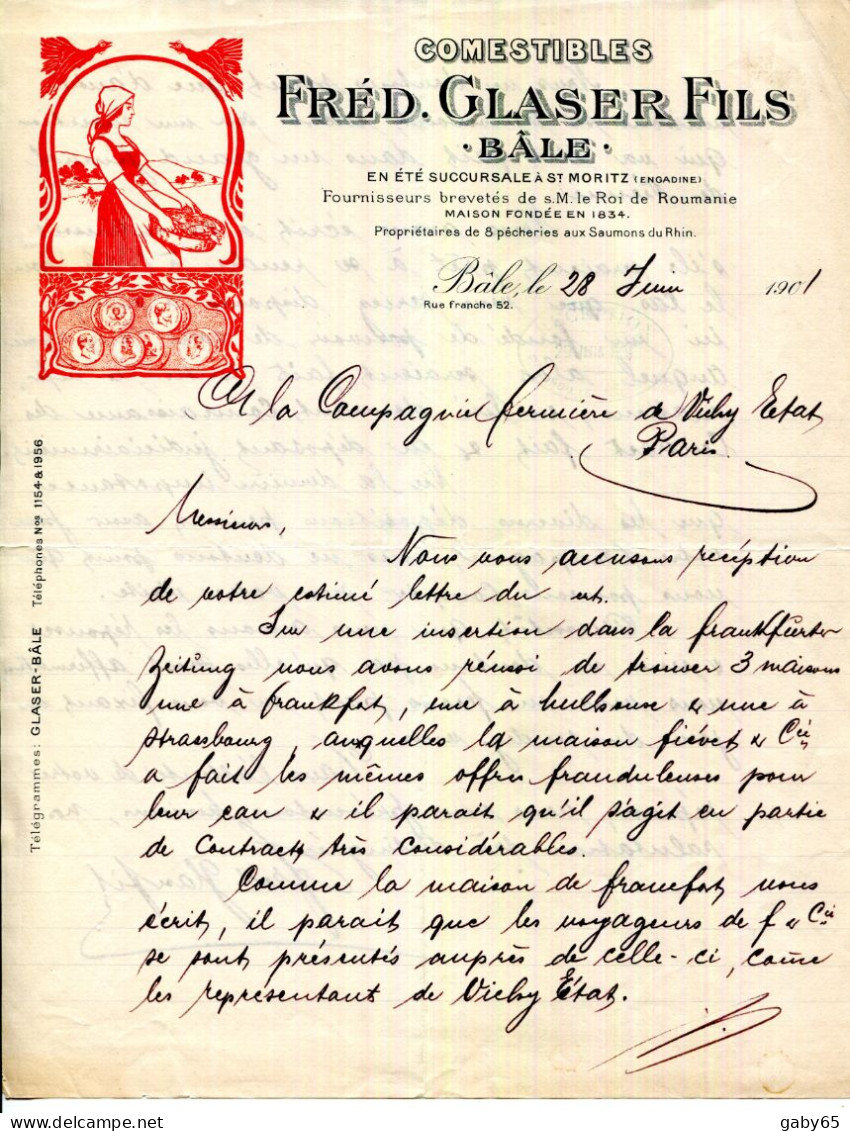 COMESTIBLES
FRÉD. GLASER FILS
· BÂLE ·
EN ÉTÉ SUCCURSALE À ST MORITZ (ENGADINE)
Fournisseurs brevetés de S.M. le Roi de Roumanie
MAISON FONDÉE EN 1834.
Propriétaires de 8 pêcheries aux Saumons du Rhin.
Bâle, le 28 Juin 1901
Rue franche 52.
A la Compagnie fermière de Vichy Etat
Paris.
Messieurs,
Nous vous accusons recéption
de votre estimé lettre du ct.
Sur une insertion dans la Frankfürter
Zeitüng nous avons réussi de trouver 3 maisons
une à Frankfort, une à Mulhouse & une à
Strassbourg, auxquelles la maison Fiévet & Cie
a fait les mêmes offres frauduleuses pour
leur eau & il parait qu'il s'agit en partie
de Contracts très considérables.
Comme la maison de Francfort nous
écrit, il parait que les voyageurs de F & Cie
se sont présentés auprès de celle-ci, come
les représentant de Vichy État.
Télégrammes: GLASER-BÂLE Téléphones Nos 1154 & 1956.
gaby65